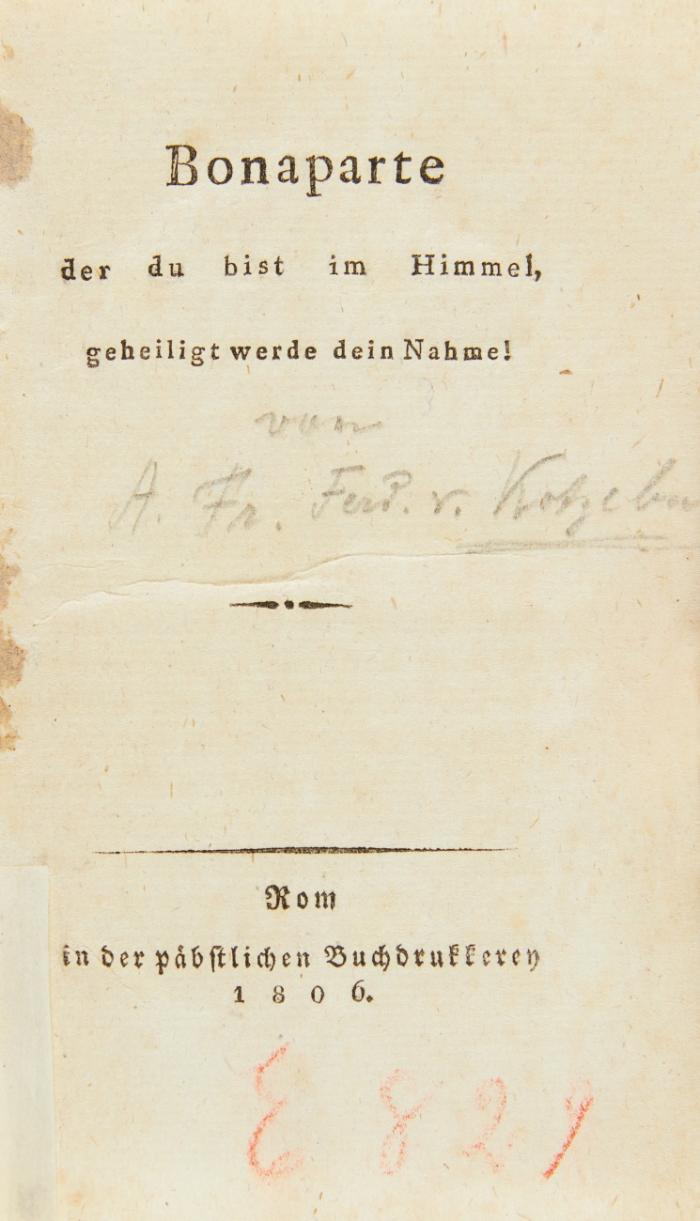 Bonaparte
der du bist im Himmel,
geheiligt werde dein Nahme!
von
A. Fr. Ferd. v. Kotzebu
Rom
in der päbstlichen Buchdrukkerey
1806.
E 829